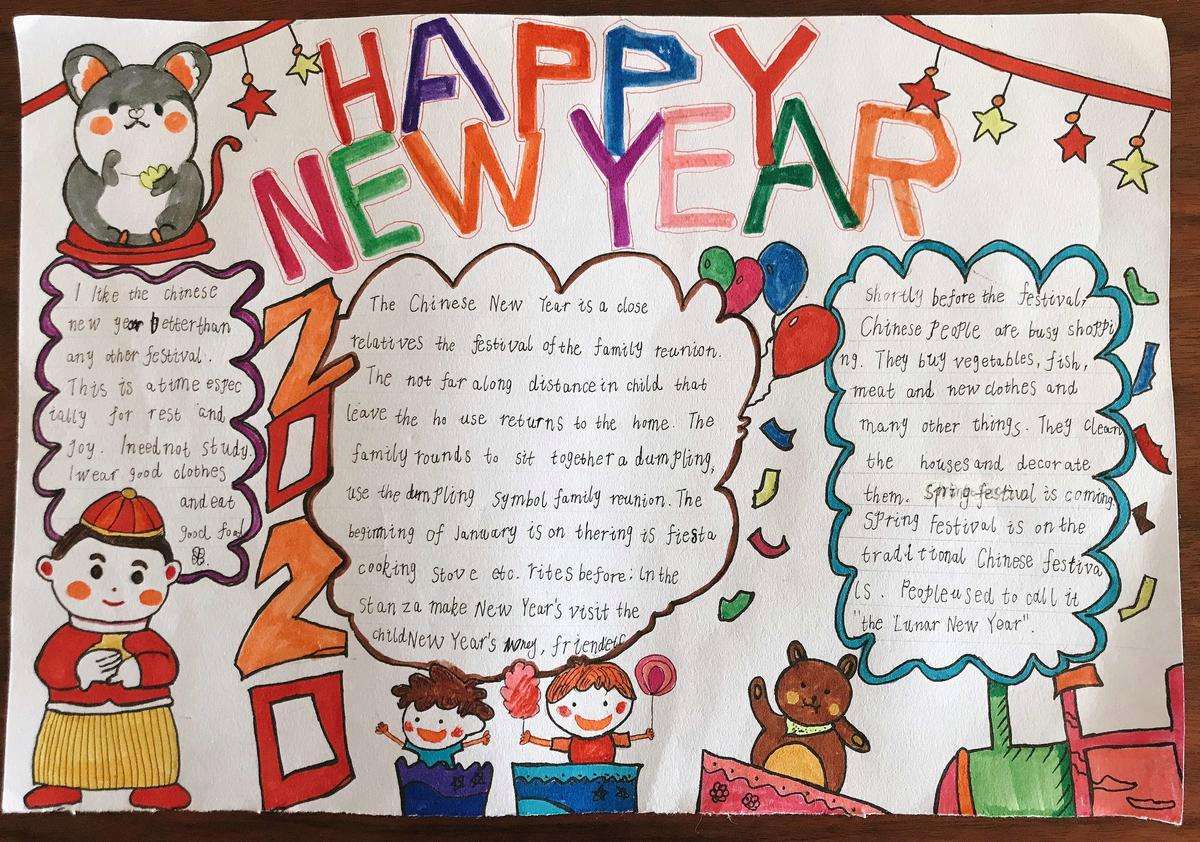 HAPPY
NEW YEAR
I like the chinese
new year better than
any other festival.
This is a time espec
ially for rest and
joy. I need not study.
I wear good clothes
and eat
good food
2020
The Chinese New Year is a close
relatives the festival of the family reunion.
The not far along distance in child that
leave the ho use returns to the home. The
family rounds to sit together a dumpling,
use the dumpling symbol family reunion. The
beginning of January is on thering is fiesta
cooking stove etc. rites before; In the
Stanza make New Year's visit the
child New Year's
Shortly before the festival,
Chinese People are busy shoppi
ng. They buy vegetables, fish,
meat and new clothes and
many other things. They clean
the houses and decorate
them. Spring festival is coming.
Spring Festival is on the
traditional Chinese festiva
ls. People used to call it
"the Lunar New Year".